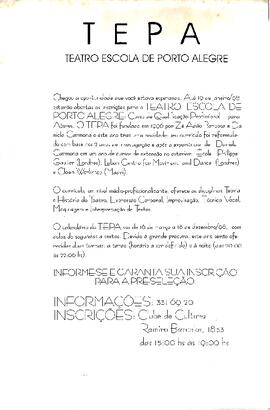 TEPA
TEATRO ESCOLA DE PORTO ALEGRE
Chegou a oportunidade que você estava esperando. Até 19 de janeiro/96
estarão abertas as inscrições para o TEATRO ESCOLA DE
PORTO ALEGRE: Curso de Qualificação Profissional para
Atores. O TEPA foi fundado em 1990 por Zé Adão Barbosa e Da-
niela Carmona e este ano terá uma novidade: seu currículo foi reformula-
do com base nos anos de e após a experiência de Daniela
Carmona em um ano de cursos de extensão no exterior: Escola Philippe
Gaulier (Londres), Laban Centre for Movement and Dance (Londres)
e Clown Workshop
O currículo, em nível médio-profissionalizante, oferece as disciplinas: Teoria
e História do Teatro, Expressão Corporal, Improvisação, Técnica Vocal,
Maquiagem e Interpretação de Textos.
O calendário do TEPA vai de 18 março a 18 de dezembro/96, com
aulas de segundas a sextas. Devido à grande procura, este ano serão ofe-
recidas duas turmas: a tarde (horário a ser definido) e à noite (das
às 22:00 hs).
INFORME-SE E GARANTA SUA INSCRIÇÃO
PARA A PRÉ-SELEÇÃO
INFORMAÇÕES: 331 69 20
INSCRIÇÕES: Clube de Cultura
Ramiro Barcelos, 1853
das 15:00 hs às 19:00 hs